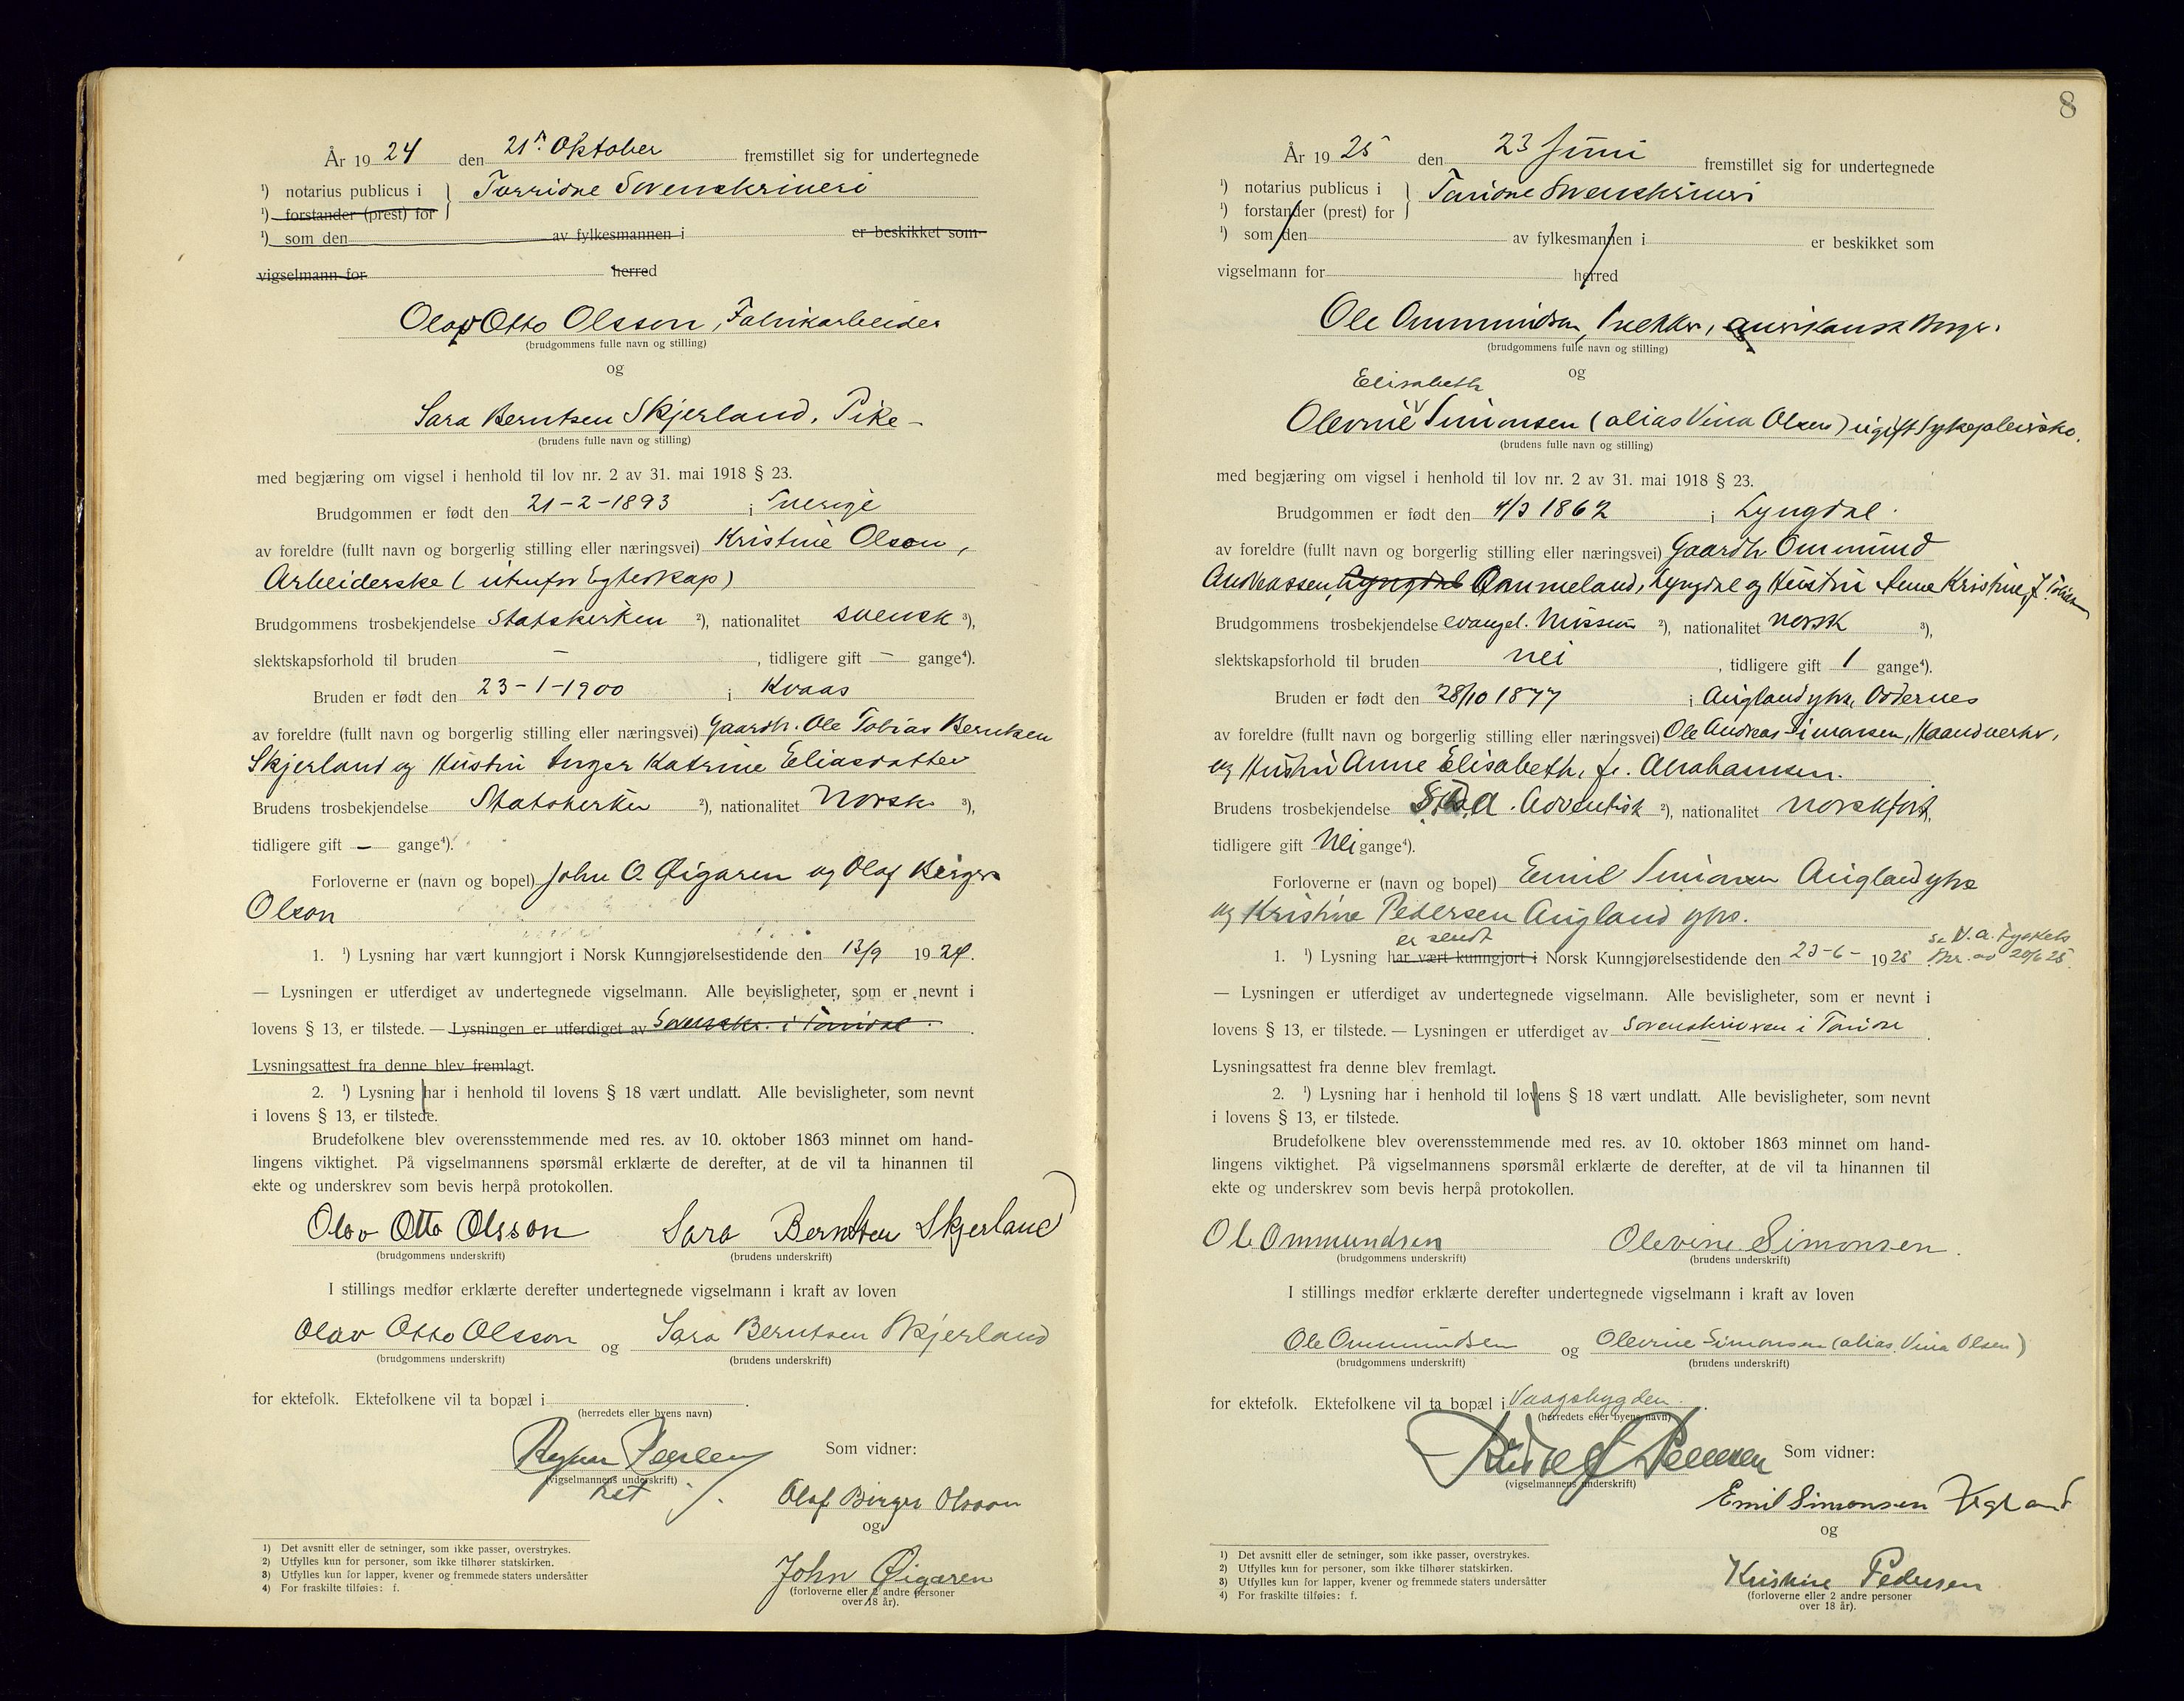 År 19 24 den 21n. Oktober fremstillet sig for undertegnede
¹) notarius publicus i } Torridal Sorenskriveri
¹) forstander (prest) for
¹) som den av fylkesmannen i er beskikket som
vigselmann for herred
Olav Otto Olsson, Fabrikarbeider
(brudgommens fulle navn og stilling)
og
Sara Berntsen Skjerland, Pike
(brudens fulle navn og stilling)
med begjæring om vigsel i henhold til lov nr. 2 av 31. mai 1918 § 23.
Brudgommen er født den 21-2-1893 i Sverige
av foreldre (fullt navn og borgerlig stilling eller næringsvei) Kristine Olson,
Arbeiderske (utenfor Egteskap)
Brudgommens trosbekjendelse Statskirken ²), nationalitet svensk ³),
slektskapsforhold til bruden – , tidligere gift – gange⁴).
Bruden er født den 23-1-1900 i Kvaas
av foreldre (fullt navn og borgerlig stilling eller næringsvei) Gaardbr. Ole Tobias Berntsen
Skjerland og Hustru Inger Katrine Eliasdatter
Brudens trosbekjendelse Statskirken ²), nationalitet Norsk ³),
tidligere gift – gange⁴).
Forloverne er (navn og bopel) John O. Øigaren og Olaf Birger
Olson
1. ¹) Lysning har vært kunngjort i Norsk Kunngjørelsestidende den 13/9 1924.
— Lysningen er utferdiget av undertegnede vigselmann. Alle bevisligheter, som er nevnt i
lovens § 13, er tilstede. — Lysningen er utferdiget av Sorenskr. i Torridal.
Lysningsattest fra denne blev fremlagt.
2. ¹) Lysning har i henhold til lovens § 18 vært undlatt. Alle bevisligheter, som nevnt
i lovens § 13, er tilstede.
Brudefolkene blev overensstemmende med res. av 10. oktober 1863 minnet om hand-
lingens viktighet. På vigselmannens spørsmål erklærte de derefter, at de vil ta hinannen til
ekte og underskrev som bevis herpå protokollen.
Olav Otto Olsson Sara Berntsen Skjerland
(brudgommens underskrift) (brudens underskrift)
I stillings medfør erklærte derefter undertegnede vigselmann i kraft av loven
Olav Otto Olsson og Sara Berntsen Skjerland
(brudgommens underskrift) (brudens underskrift)
for ektefolk. Ektefolkene vil ta bopæl i .
(herredets eller byens navn)
Som vidner:
(vigselmannens underskrift)
Olaf Birger Olsson
og
John Øigaren
(forloverne eller 2 andre personer
over 18 år).
1) Det avsnitt eller de setninger, som ikke passer, overstrykes.
2) Utfylles kun for personer, som ikke tilhører statskirken.
3) Utfylles kun for lapper, kvener og fremmede staters undersåtter
4) For fraskilte tilføies: f.
8
År 19 25 den 23 Juni fremstillet sig for undertegnede
¹) notarius publicus i } Torridal Sorenskriveri
¹) forstander (prest) for
¹) som den av fylkesmannen i er beskikket som
vigselmann for herred
Ole Ommundsen, Snekker, amerikansk Borger.
(brudgommens fulle navn og stilling)
og
Elisabeth
Olevine Simonsen (alias Vina Olsen) ugift Sykepleierske.
(brudens fulle navn og stilling)
med begjæring om vigsel i henhold til lov nr. 2 av 31. mai 1918 § 23.
Brudgommen er født den 4/3 1862 i Lyngdal.
av foreldre (fullt navn og borgerlig stilling eller næringsvei) Gaardbr Ommund
Andreassen Lyngdal Ommeland, Lyngdal og Hustru Anne Kristine, f.
Brudgommens trosbekjendelse evangel. Mission ²), nationalitet norsk ³),
slektskapsforhold til bruden nei , tidligere gift 1 gange⁴).
Bruden er født den 28/10 1877 i Augland yhr, Oddernes
av foreldre (fullt navn og borgerlig stilling eller næringsvei) Ole Andreas Simonsen, Haandverker,
og Hustru Anne Elisabeth, f. Abrahamsen.
Brudens trosbekjendelse S.D.A. Adventist ²), nationalitet norskfødt,
tidligere gift Nei gange⁴).
Forloverne er (navn og bopel) Emil Simonsen Augland yhr
og Kristine Pedersen Augland yhr.
er sendt
1. ¹) Lysning har vært kunngjort i Norsk Kunngjørelsestidende den 23-6- 1925
Se N.a. Lysnings
20/6 25.
— Lysningen er utferdiget av undertegnede vigselmann. Alle bevisligheter, som er nevnt i
lovens § 13, er tilstede. — Lysningen er utferdiget av Sorenskriveren i Torridal.
Lysningsattest fra denne blev fremlagt.
2. ¹) Lysning har i henhold til lovens § 18 vært undlatt. Alle bevisligheter, som nevnt
i lovens § 13, er tilstede.
Brudefolkene blev overensstemmende med res. av 10. oktober 1863 minnet om hand-
lingens viktighet. På vigselmannens spørsmål erklærte de derefter, at de vil ta hinannen til
ekte og underskrev som bevis herpå protokollen.
Ole Ommundsen Olevine Simonsen.
(brudgommens underskrift) (brudens underskrift)
I stillings medfør erklærte derefter undertegnede vigselmann i kraft av loven
Ole Ommundsen og Olevine Simonsen (alias Vina Olsen)
(brudgommens underskrift) (brudens underskrift)
for ektefolk. Ektefolkene vil ta bopæl i Vaagsbygden.
(herredets eller byens navn)
Som vidner:
(vigselmannens underskrift)
Emil Simonsen Augland
og
Kristine Pedersen
(forloverne eller 2 andre personer
over 18 år).
1) Det avsnitt eller de setninger, som ikke passer, overstrykes.
2) Utfylles kun for personer, som ikke tilhører statskirken.
3) Utfylles kun for lapper, kvener og fremmede staters undersåtter
4) For fraskilte tilføies: f.